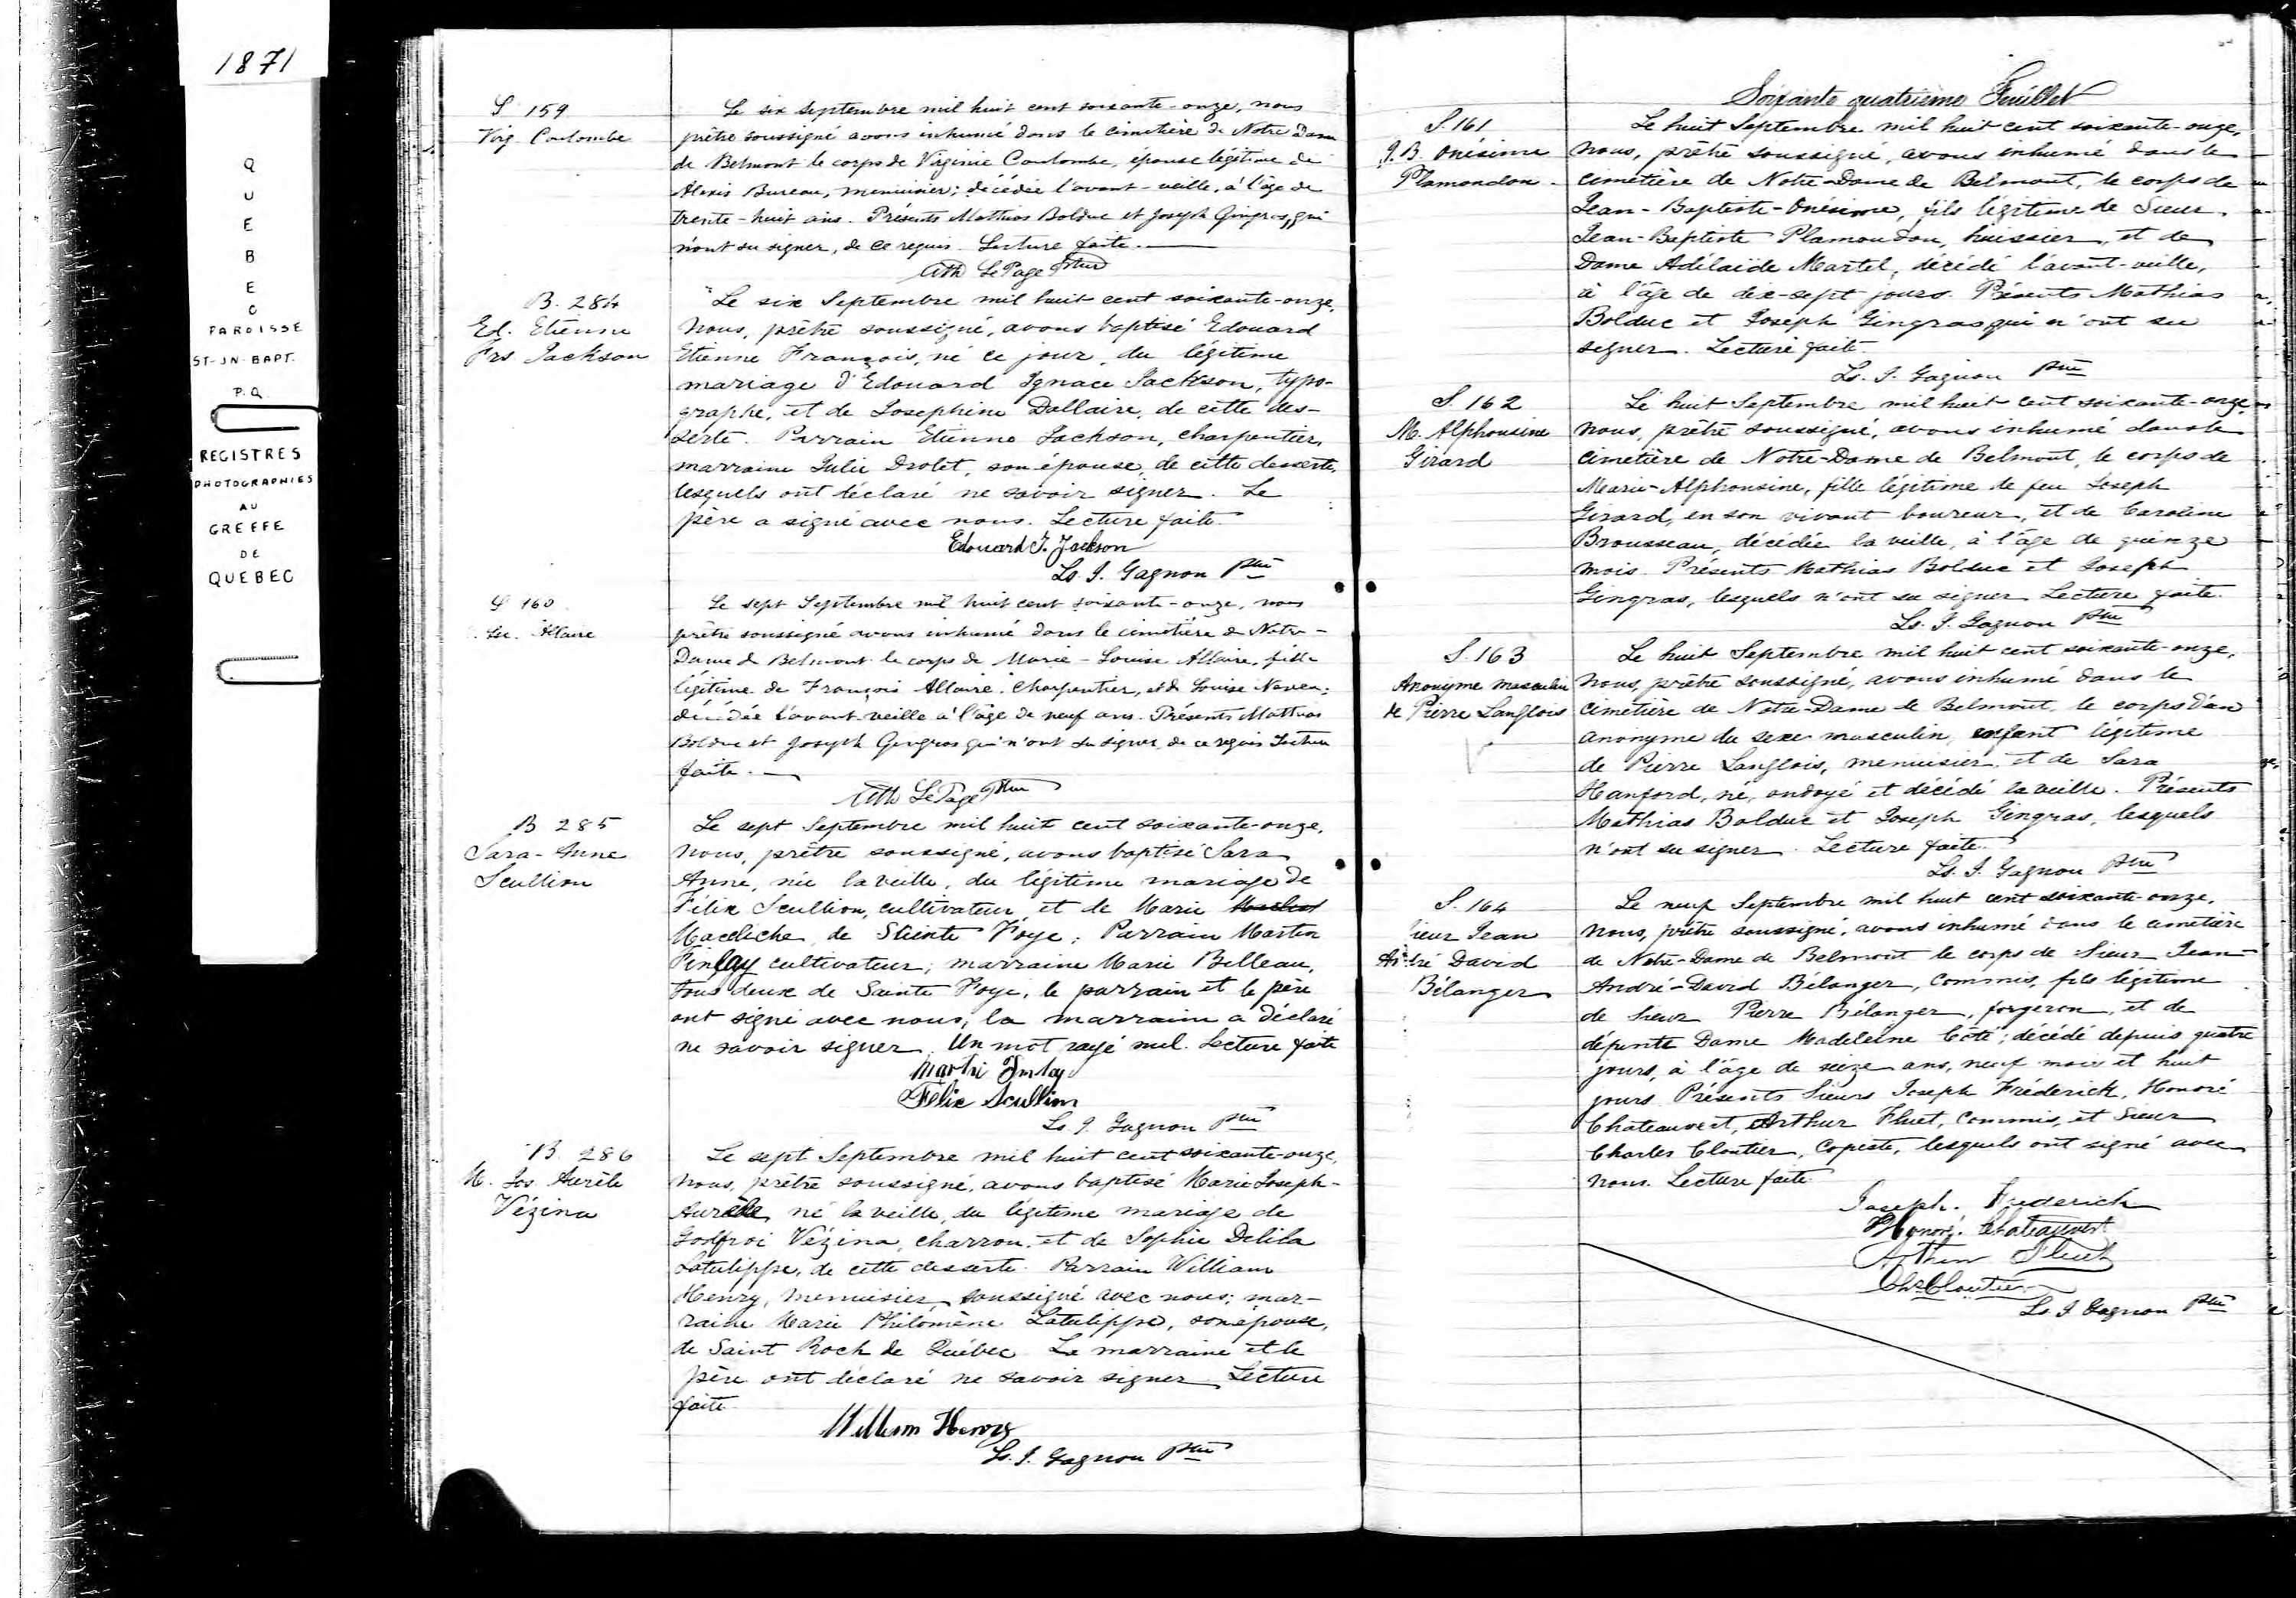 1871
QUEBEC
PAROISSE
ST-JN-BAPT.
P.Q.
REGISTRES
PHOTOGRAPHIES
AU
GREFFE
DE
QUEBEC
S 159
Virg. Coulombe
Le six Septembre mil huit cent soixante-onze, nous
prêtre soussigné avons inhumé dans le cimetière de Notre Dame
de Belmont le corps de Virginie Coulombe, épouse légitime de
Alexis Bureau, menuisier; décédée l'avant-veille, à l'âge de
trente-huit ans. Présents Mathias Bolduc et Joseph Gingras, qui
n'ont su signer, de ce requis. Lecture faite.
Ath LePage Ptre
B. 284
Ed. Etienne
Frs Jackson
Le six Septembre mil huit cent soixante-onze,
Nous, prêtre soussigné, avons baptisé Edouard
Etienne François, né ce jour, du légitime
mariage d'Edouard Ignace Jackson, typo-
graphe, et de Josephine Dallaire, de cette des-
serte. Parrain Etienne Jackson, charpentier,
marraine Julie Drolet, son épouse, de cette desserte,
lesquels ont déclaré ne savoir signer. Le
père a signé avec nous. Lecture faite.
Edouard I. Jackson
Ls. I. Gagnon Ptre
S 160
Lse. Allaire
Le sept Septembre mil huit cent soixante-onze, nous
prêtre soussigné avons inhumé dans le cimetière de Notre-
Dame de Belmont le corps de Marie-Louise Allaire, fille
légitime de François Allaire, Charpentier, et de Louise Naveau;
décédée l'avant veille à l'âge de neuf ans. Présents Mathias
Bolduc et Joseph Gingras qui n'ont su signer, de ce requis Lecture
faite.
Ath LePage Ptre
B 285
Sara-Anne
Scullion
Le sept Septembre mil huit cent soixante-onze,
Nous, prêtre soussigné, avons baptisé Sara
Anne, née la veille, du légitime mariage de
Félix Scullion, cultivateur, et de Marie
Maccliche, de Sainte Foye; Parrain Martin
Finlay cultivateur; marraine Marie Belleau,
tous deux de Sainte Foye, le parrain et le père
ont signé avec nous; la marraine a déclaré
ne savoir signer. Un mot rayé nul. Lecture faite
Martin Finlay
Felix Scullion
Ls. I. Gagnon Ptre
B. 286
M. Jos. Aurèle
Vézina
Le sept Septembre mil huit cent soixante-onze,
Nous, prêtre soussigné, avons baptisé Marie Joseph-
Aurèle, né la veille, du légitime mariage de
Godfroi Vézina, charron, et de Sophie Delila
Latulippe, de cette desserte. Parrain William
Henry, menuisier, soussigné avec nous; mar-
raine Marie Philomène Latulippe, son épouse,
de Saint Roch de Québec. La marraine et le
père ont déclaré ne savoir signer. Lecture
faite.
William Henry
Ls. I. Gagnon Ptre
Soixante quatrième Feuillet
S. 161
J. B. Onésime
Plamondon
Le huit Septembre mil huit cent soixante-onze,
Nous, prêtre soussigné, avons inhumé dans le
cimetière de Notre-Dame de Belmont, le corps de
Jean-Baptiste-Onésime, fils légitime de Sieur
Jean-Baptiste Plamondon, huissier, et de
Dame Adélaïde Martel, décédé l'avant-veille,
à l'âge de dix-sept jours. Présents Mathias
Bolduc et Joseph Gingras qui n'ont su
signer. Lecture faite.
Ls. I. Gagnon Ptre
S. 162
M. Alphonsine
Girard
Le huit Septembre mil huit cent soixante-onze,
Nous, prêtre soussigné, avons inhumé dans le
Cimetière de Notre-Dame de Belmont, le corps de
Marie-Alphonsine, fille légitime de feu Joseph
Girard, en son vivant boureur, et de Caroline
Brousseau, décédée la veille, à l'âge de quinze
mois. Présents Mathias Bolduc et Joseph
Gingras, lesquels n'ont su signer. Lecture faite.
Ls. I. Gagnon Ptre
S. 163
Anonyme masculin
de Pierre Langlois
Le huit Septembre mil huit cent soixante-onze,
Nous, prêtre soussigné, avons inhumé dans le
Cimetière de Notre-Dame de Belmont, le corps d'un
anonyme du sexe masculin, enfant légitime
de Pierre Langlois, menuisier, et de Sara
Hanford, né, ondoyé et décédé la veille. Présents
Mathias Bolduc et Joseph Gingras, lesquels
n'ont su signer. Lecture faite.
Ls. I. Gagnon Ptre
S. 164
Sieur Jean
André David
Bélanger
Le neuf Septembre mil huit cent soixante-onze,
Nous, prêtre soussigné, avons inhumé dans le cimetière
de Notre-Dame de Belmont le corps de Sieur Jean-
André-David Bélanger, Commis, fils légitime
de Sieur Pierre Bélanger, forgeron, et de
défunte Dame Madeleine Côté; décédé depuis quatre
jours, à l'âge de seize ans, neuf mois et huit
jours. Présents Sieurs Joseph Fréderick, Honoré
Chateauvert, Arthur Fluet, Commis, et Sieur
Charles Cloutier, Copiste, lesquels ont signé avec
nous. Lecture faite.
Joseph. Frederick
Honoré. Chateauvert
Arthur Fluet
Chs Cloutier
Ls. I. Gagnon Ptre